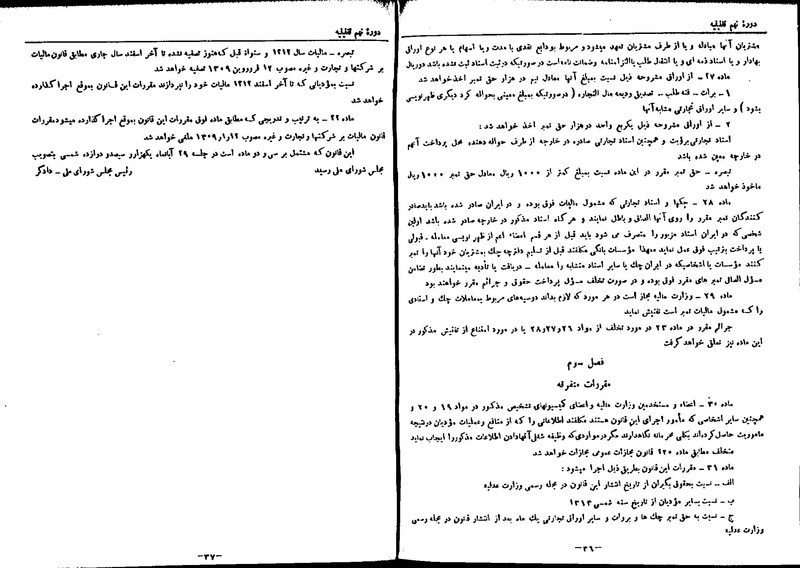 دورهٔ نهم تقنینیه
مشتریان آنها مبادله و یا از طرف مشتریان تعهد میشود و مربوط بودایع نقدی با مدت و یا اسهام یا هر نوع اوراق
بهادار و یا اسناد ذمه ای و یا انتقال طلب یا التزامنامه و ضمانت نامه است در صورتیکه در ثبت اسناد ثبت نشده باشد دو ریال
ماده ۲۷ – از اوراق مشروحه ذیل نسبت بمبلغ آنها معادل نیم در هزار حق تمبر اخذ خواهد شد
۱ – برات – فته طلب – تصدیق ودیعه مال التجاره ( در صورتیکه بمبلغ معینی بحواله کرد دیگری ظهرنویسی
بشود ) و سایر اوراق تجارتی مشابه آنها
۲ – از اوراق مشروحه ذیل یکربع واحد در هزار حق تمبر اخذ خواهد شد :
اسناد تجارتی برؤیت و همچنین اسناد تجارتی صادره در خارجه از طرف حواله دهنده محل پرداخت آنهم
در خارجه معین شده باشد
تبصره – حق تمبر مقرر در این ماده نسبت بمبلغ کمتر از ۱۰۰۰ ریال معادل حق تمبر ۱۰۰۰ ریال
ماخوذ خواهد شد
ماده ۲۸ – چکها و اسناد تجارتی که مشمول مالیات فوق بوده و در ایران صادر شده باشد باید صادر
کنندگان تمبر مقرر را روی آنها الصاق و باطل نمایند و هر گاه اسناد مذکور در خارجه صادر شده باشد اولین
شخصی که در ایران اسناد مزبور را متصرف می شود باید قبل از هر قسم امضاء اعم از ظهر نویسی معامله – قبولی
یا پرداخت بترتیب فوق عمل نماید معهذا مؤسسات بانکی مکلفند قبل از تسلیم دفترچه چک بمشتریان خود آنها را تمبر
کنند مؤسسات یا اشخاصیکه در ایران چک یا سایر اسناد متشابه را معامله – دریافت یا تأدیه مینمایند بطور تضامن
مسؤل الصاق تمبر های مقرر فوق بوده و در صورت تخلف مسؤل پرداخت حقوق و جرائم مقرر خواهند بود
ماده ۲۹ – وزارت مالیه مجاز است در هر مورد که لازم بداند دوسیه‌های مربوط بمعاملات چک و اسنادی
را که مشمول مالیات تمبر است تفتیش نماید
جرائم مقرر در ماده ۲۳ در مورد تخلف از مواد ۲۶ و ۲۷ و ۲۸ یا در مورد امتناع از تفتیش مذکور در
این ماده نیز تعلق خواهد گرفت
فصل سوم
مقررات متفرقه
ماده ۳۰ – اعضاء و مستخدمین وزارت مالیه و اعضای کمیسیونهای تشخیص مذکور در مواد ۱۹ و ۲۰ و
همچنین سایر اشخاصی که مأمور اجرای این قانون هستند مکلفند اطلاعاتی را که از منافع و عملیات مؤدیان در نتیجه
ماموریت حاصل کرده‌اند بکلی محرمانه نگاهدارند مگر در مواردی که وظیفه شغلی آنها دادن اطلاعات مذکور را ایجاب نماید
متخلف مطابق ماده ۲۲۰ قانون مجازات عمومی مجازات خواهد شد
ماده ۳۱ – مقررات این قانون بطریق ذیل اجرا میشود :
الف – نسبت بحقوق بگیران از تاریخ انتشار این قانون در مجله رسمی وزارت عدلیه
ب – نسبت بسایر مؤدیان از تاریخ سنه شمسی ۱۳۱۳
ج – نسبت به حق تمبر چک ها و بروات و سایر اوراق تجارتی یک ماه بعد از انتشار قانون در مجله رسمی
وزارت عدلیه
–۳۶–
دورهٔ نهم تقنینیه
تبصره – مالیات سال ۱۳۱۲ و سنواة قبل که هنوز تصفیه نشده تا آخر اسفند سال جاری مطابق قانون مالیات
بر شرکتها و تجارت و غیره مصوب ۱۲ فروردین ۱۳۰۹ تصفیه خواهد شد
نسبت بمؤدیانی که تا آخر اسفند ۱۳۱۲ مالیات خود را نپردازند مقررات این قانون بموقع اجرا گذارده
خواهد شد
ماده ۳۲ – به ترتیب و تدریجی که مطابق ماده فوق مقررات این قانون بموقع اجرا گذارده میشود مقررات
قانون مالیات بر شرکتها و تجارت و غیره مصوب ۱۲ر۱ر۱۳۰۹ ملغی خواهد شد
این قانون که مشتمل بر سی و دو ماده است در جلسه ۲۹ آبانماه یکهزار و سیصد و دوازده شمسی بتصویب
مجلس شورای ملی رسید رئیس مجلس شورای ملی – دادگر
–۳۷–